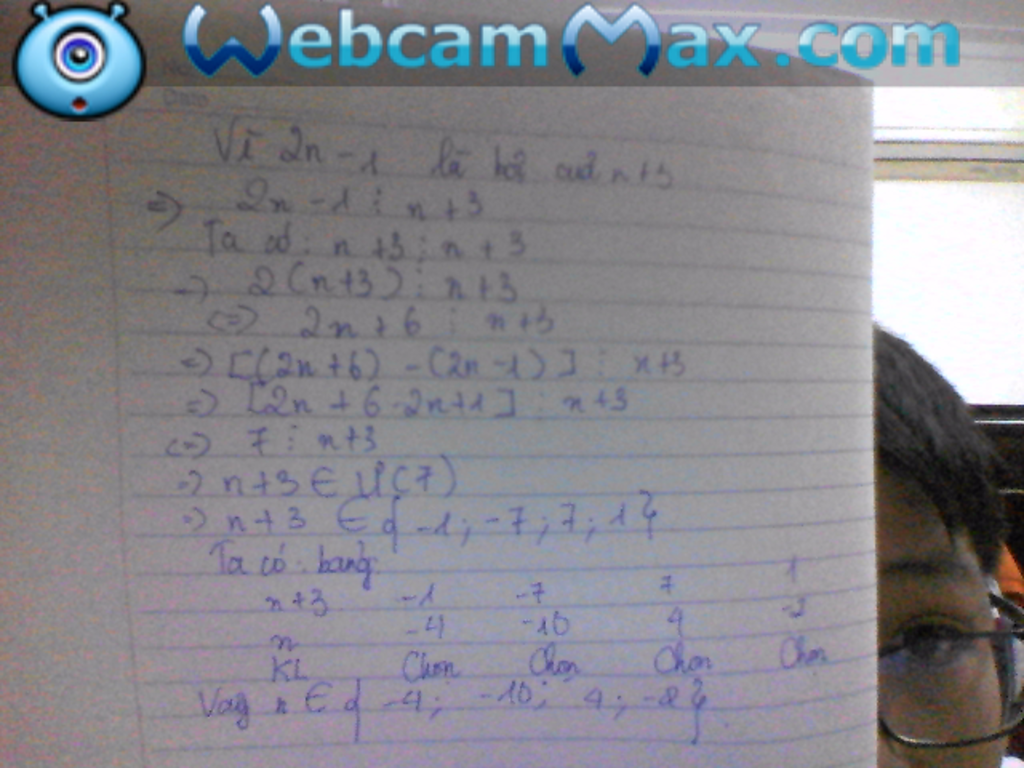 WebcamMax.com
Vì 2n - 1 là bội của n+3
=> 2n - 1 ⋮ n+3
Ta có: n+3 ⋮ n+3
=> 2(n+3) ⋮ n+3
<=> 2n + 6 ⋮ n+3
=> [(2n+6) - (2n-1)] ⋮ n+3
=> [2n + 6 - 2n+1] ⋮ n+3
<=> 7 ⋮ n+3
=> n+3 ∈ Ư(7)
=> n+3 ∈ { -1; -7; 7; 1}
Ta có bảng
n+3 -1 -7 7 1
n -4 -10 4 -2
KL Chọn Chọn Chọn Chọn
Vậy n ∈ { -4; -10; 4; -2}